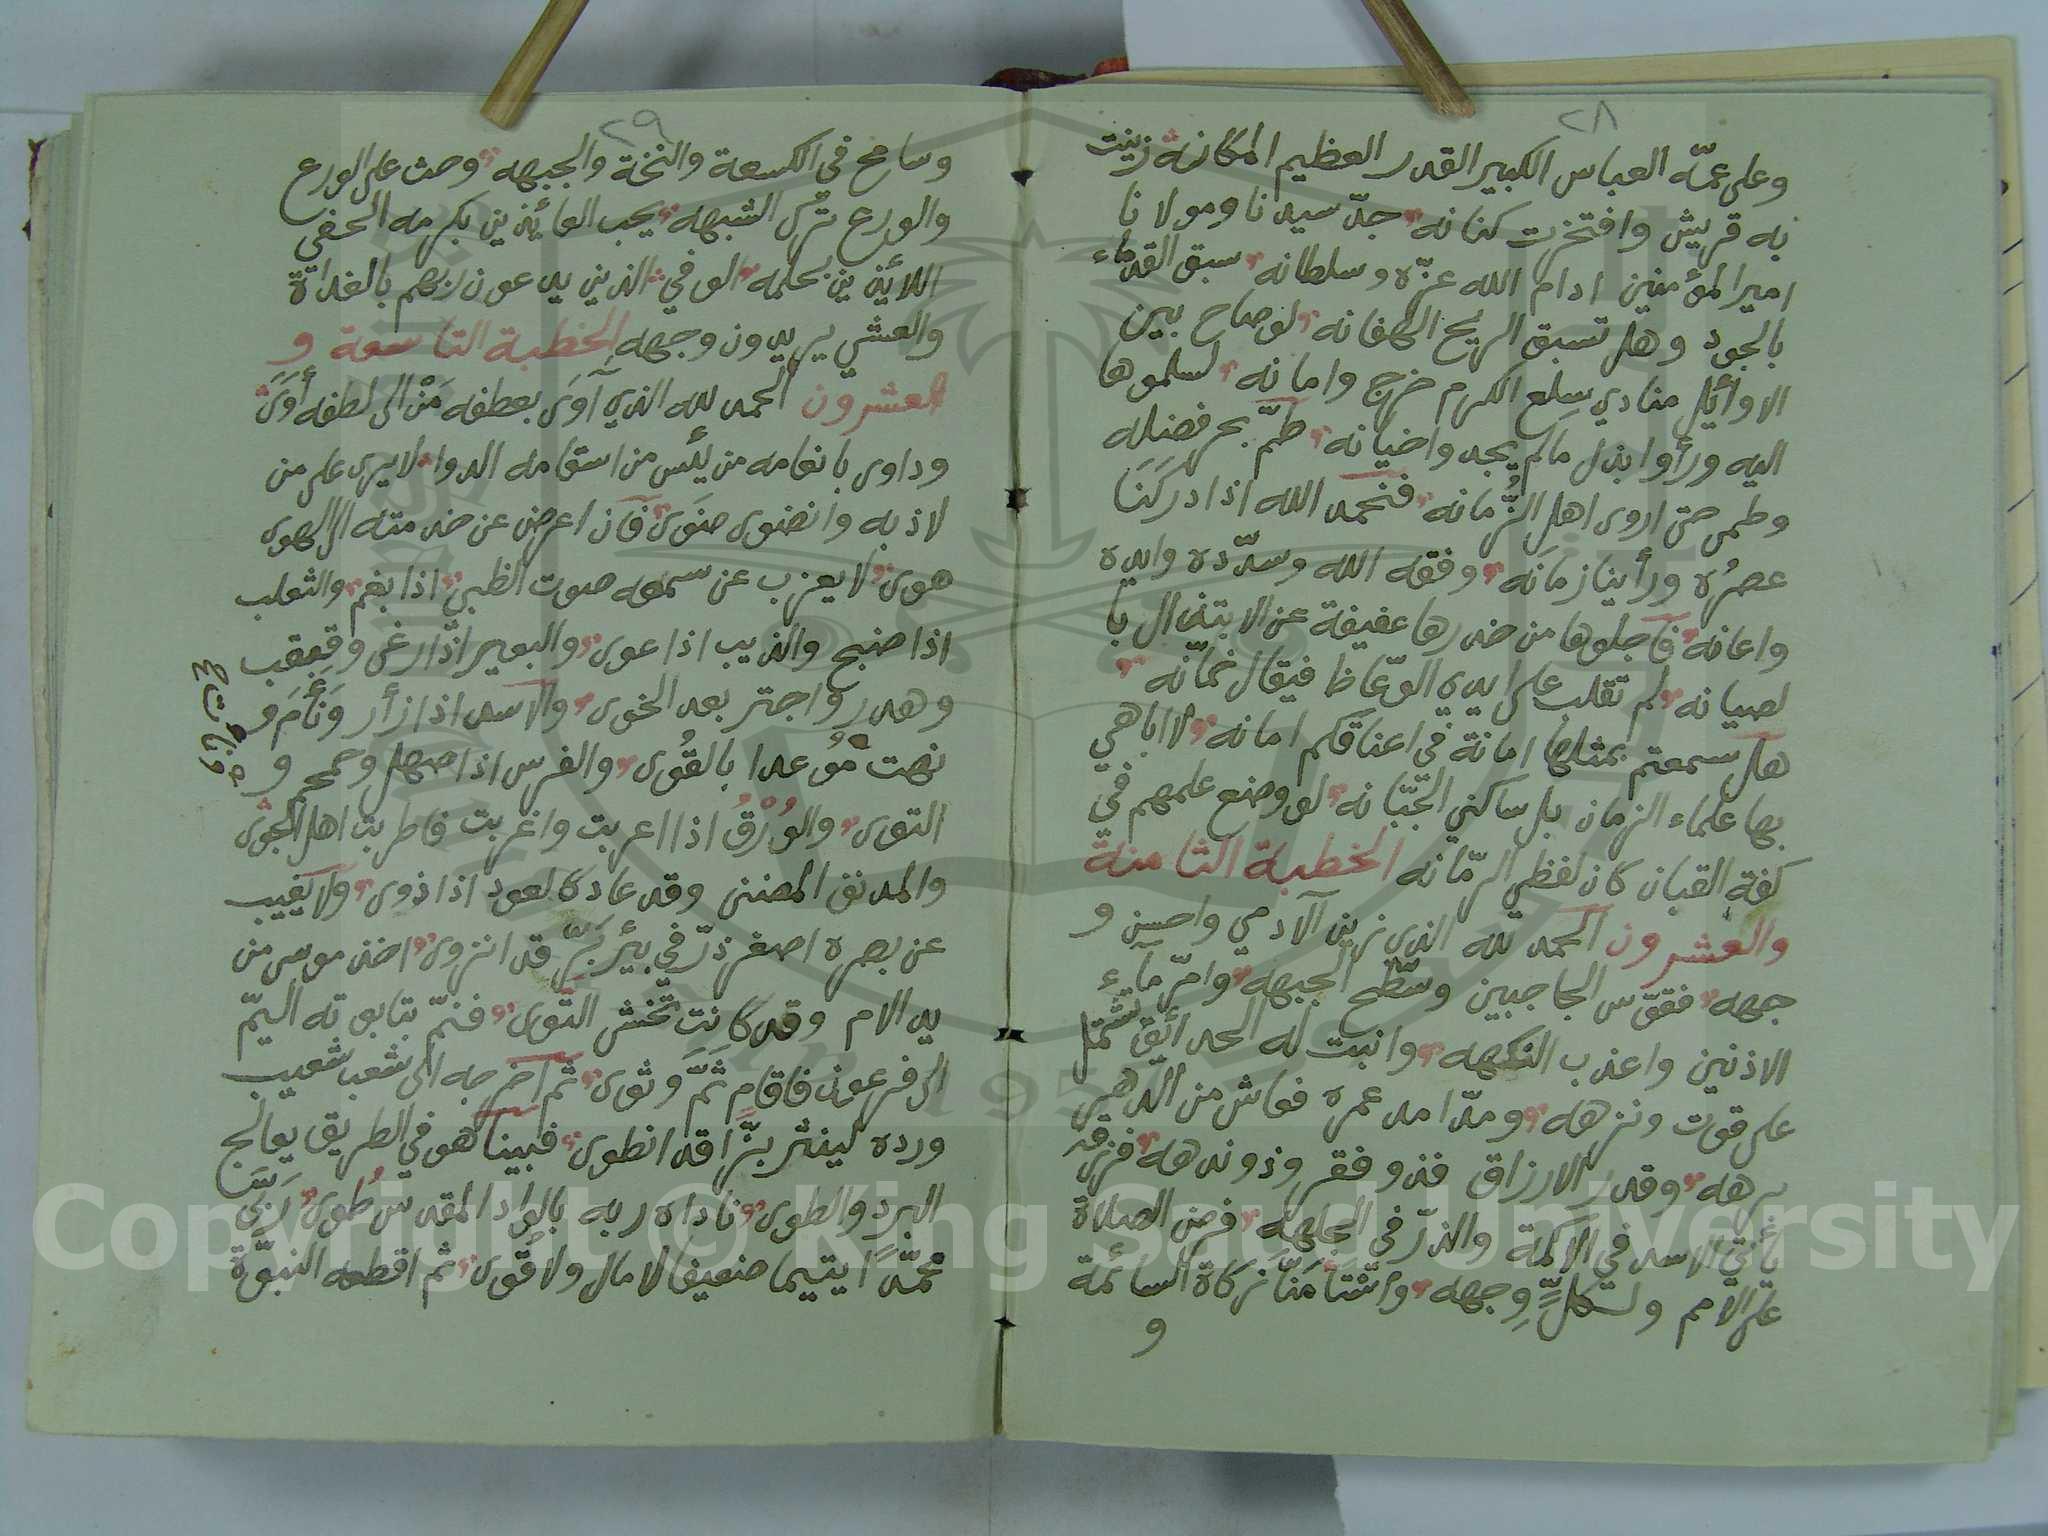 ٢٨
وعلى عمّه العباس الكبير القدر العظيم المكانه زينت
به قريش وافتخرت كنانه جدّ سيدنا ومولانا
امير المؤمنين ادام الله عزّه وسلطانه سبق القدماء
بالجود وهل تسبق الريح الهفانه لو صاح بين
الاوائل منادي سلع الكرم خرج وامانه لسلموها
اليه ورأوا بذل مالم يجد واخيانه طمّ بحر فضله
وطمى حتى اروى اهل الزّمانه فنحمد الله اذ ادركنا
عصرُه ورأينا زمانَه وفقه الله وسدّده وايده
واعانه فاجلوها من خدرها عفيفة عن الابتذال يا
لصيانه لم تقلب على ايدي الوعّاظ فيقال نمّانه
هل سمعتم بمثلها امانة في اعناقكم امانه لا اباهي
بها علماء الزمان بل ساكني الجبّانه لو وضع علمهم في
كفة القبان كان لفظي الرمّانه الخطبة الثامنة
والعشرون الحمد لله الذي زين الآدمي واحسن و
جهه فقوّس الحاجبين وسطّح الجبهه وامرّ مآء
الاذنين واعذب النكهه وانبت له الحدائق تشتمل
على قوت ونزهه ومدّ امد عمره فعاش من الدهر
برهه وقدر الارزاق فذو فقر وذو ندهه فرزقه
يأتي الاسد في الاكمة والذرّ في الجلهه فرض الصلاة
على الامم ولكلٍّ وِجهه واشتأمنا زكاة السائمة
و
٢٩
وسامح في الكسعة والنخة والجبهه وحث على الورع
والورع ترك الشبهه يحب العائذين بكرمه الحفي
اللائذين بحلمه الوفي الذين يدعون ربهم بالغداة
والعشي يريدون وجهه الخطبة التاسعة و
العشرون الحمد لله الذي آوَى بعطفه مَنْ الى لطفه أوَى
وداوى بانعامه من يئس من اسقامه الدوا لا يرى على من
لاذ به وانضوى ضوى فان اعرض عن خدمته الى الهوى
هوى لا يعزب عن سمعه صوت الظبي اذا بغم والثعلب
اذا ضبح والذيب اذا عوى والبعير اذا رغى وقبقب
وهدر واجتر بعد الخوى والاسد اذا زأر وَنَأَمَ و
نهت مُوعدا بالقُوى والفرس اذا صهل وحمحم و
التوى والوُرْقُ اذا اعربت واغربت فاطربت اهل الجوى
والمدنف المضنى وقد عاد كالعود اذا ذوى ولا يغيب
عن بصره اصغر ذرّ في بئر بَرّ قد انزوى اخذ موسى من
يد الام وقد كانت تخشى التوى فنمّ بتابوته اليمّ
الى فرعون فاقام ثمَّ وثوى ثم اخرجه الى شعب شعيب
ورده لينشر بزّا قد انطوى فبينا هو في الطريق يعالج
البرد والطوى ناداه ربه بالواد المقدس طُوى رَبَّى
محمّدًا يتيما ضعيفا لا مال ولا قُوى ثم اقطعه النبوّة